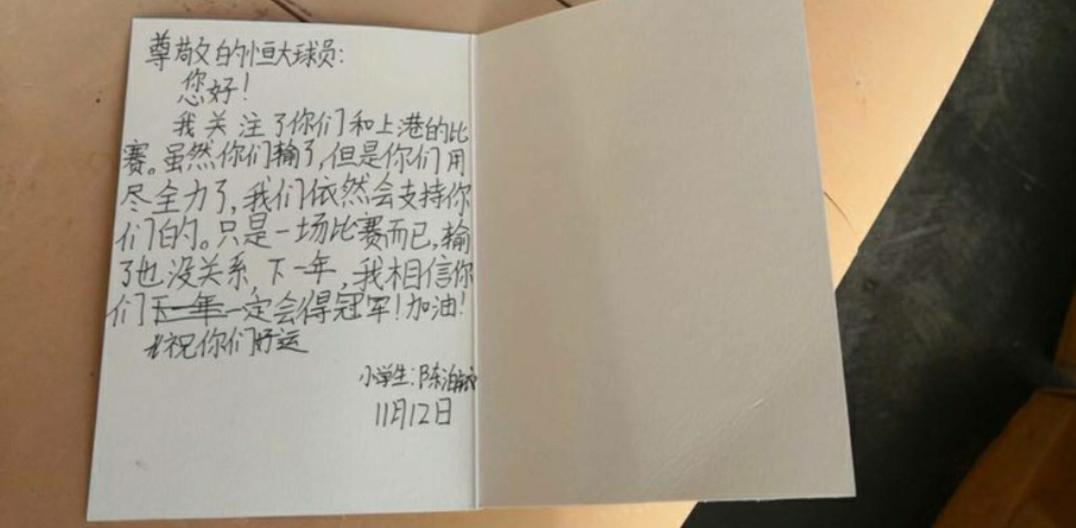 尊敬的恒大球员:
您好!
我关注了你们和上港的比
赛。虽然你们输了,但是你们用
尽全力了,我们依然会支持你
们的。只是一场比赛而已,输
了也没关系,下一年,我相信你
们下一年一定会得冠军!加油!
祝你们好运
小学生:陈泊
11月12日